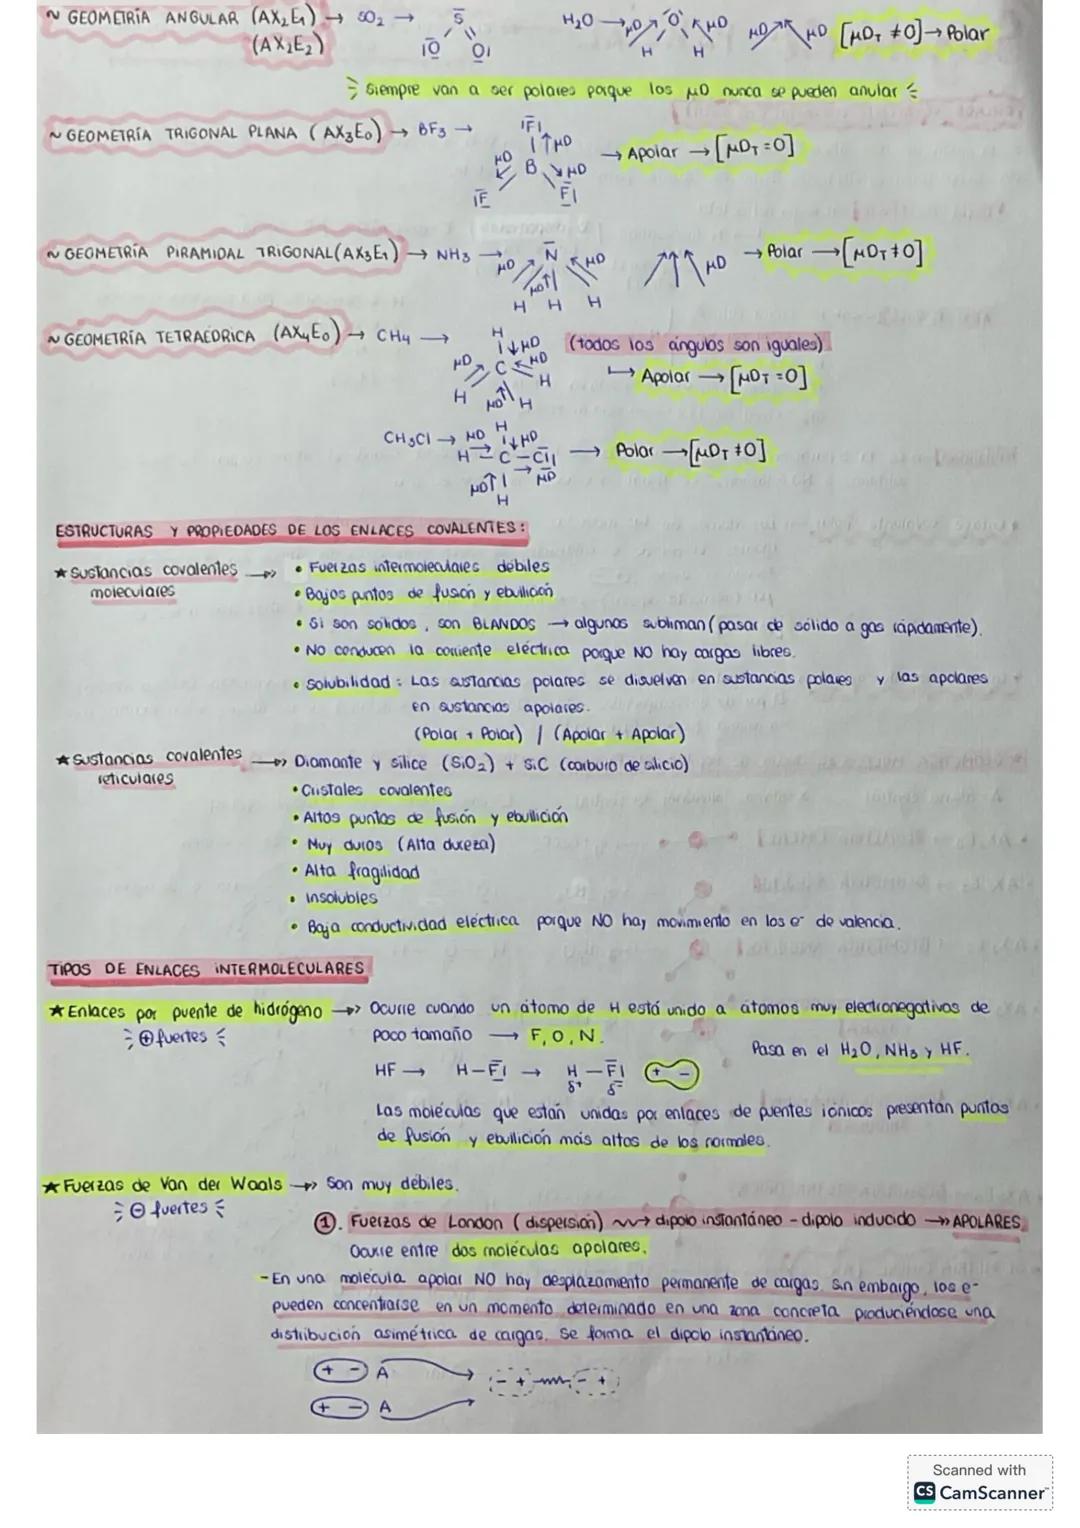 ~ GEOMETRÍA ANGULAR (AX₂E₁) → SO₂ → S̄ IO̅ O̅I H₂O → μD O μD H H μD μD [μD_T ≠ 0] → Polar
(AX₂E₂)
Siempre van a ser polares porque los μD nunca se pueden anular
~ GEOMETRÍA TRIGONAL PLANA (AX₃E₀) → BF₃ → IF̅I μD B μD μD IF̅ F̅I → Apolar → [μD_T = 0]
~ GEOMETRÍA PIRAMIDAL TRIGONAL (AX₃E₁) → NH₃ → μD N̅ μD μD H H H μD → Polar → [μD_T ≠ 0]
~ GEOMETRÍA TETRAÉDRICA (AX₄E₀) → CH₄ → H μD μD C μD H μD H H (todos los ángulos son iguales)
↳ Apolar → [μD_T = 0]
CH₃Cl → μD H μD H - C - C̅l̅I μD μD H → Polar → [μD_T ≠ 0]
ESTRUCTURAS Y PROPIEDADES DE LOS ENLACES COVALENTES:
★ Sustancias covalentes moleculares →» • Fuerzas intermoleculares débiles
• Bajos puntos de fusión y ebullición
• Si son sólidos, son BLANDOS → algunos subliman (pasar de sólido a gas rápidamente).
• No conducen la corriente eléctrica porque NO hay cargas libres.
• Solubilidad: Las sustancias polares se disuelven en sustancias polares y las apolares
en sustancias apolares.
(Polar + Polar) / (Apolar + Apolar)
★ Sustancias covalentes reticulares →» Diamante y sílice (SiO₂) + SiC (carburo de silicio)
• Cristales covalentes
• Altos puntos de fusión y ebullición
• Muy duros (Alta dureza)
• Alta fragilidad
• Insolubles
• Baja conductividad eléctrica porque NO hay movimiento en los e⁻ de valencia.
TIPOS DE ENLACES INTERMOLECULARES
★ Enlaces por puente de hidrógeno →» Ocurre cuando un átomo de H está unido a átomos muy electronegativos de
⊕ fuertes poco tamaño → F, O, N.
Pasa en el H₂O, NH₃ y HF.
HF → H-F̅I → H - F̅I δ+ δ- + -
Las moléculas que están unidas por enlaces de puentes iónicos presentan puntos
de fusión y ebullición más altos de los normales.
★ Fuerzas de Van der Waals →» Son muy débiles.
⊖ fuertes
①. Fuerzas de London (dispersión) ~> dipolo instantáneo - dipolo inducido →» APOLARES
Ocurre entre dos moléculas apolares.
- En una molécula apolar NO hay desplazamiento permanente de cargas. Sin embargo, los e⁻
pueden concentrarse en un momento determinado en una zona concreta produciéndose una
distribución asimétrica de cargas. Se forma el dipolo instantáneo.
+ - A → - + - +
+ - A →
Scanned with
CS CamScanner